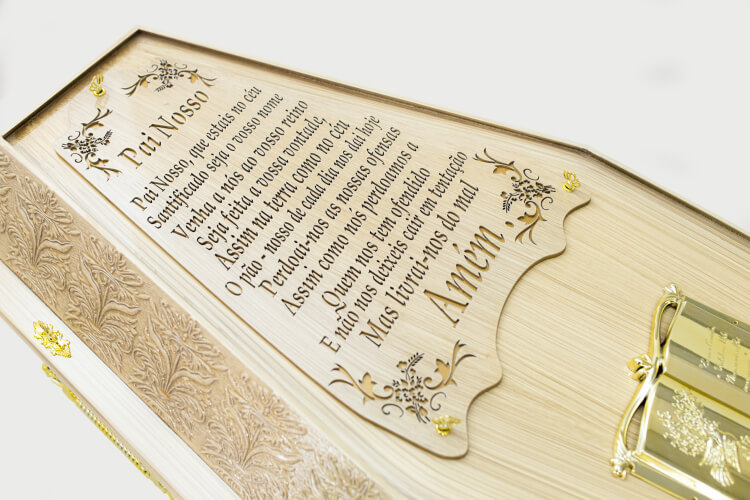 Pai Nosso
Pai Nosso, que estais no céu
Santificado seja o vosso nome
Venha a nós ao vosso reino
Seja feita a vossa vontade,
Assim na terra como no céu
O pão - nosso de cada dia nos dai hoje
Perdoai-nos as nossas ofensas
Assim como nós perdoamos a
Quem nos tem ofendido
E não nos deixeis cair em tentação
Mas livrai-nos do mal
Amém.